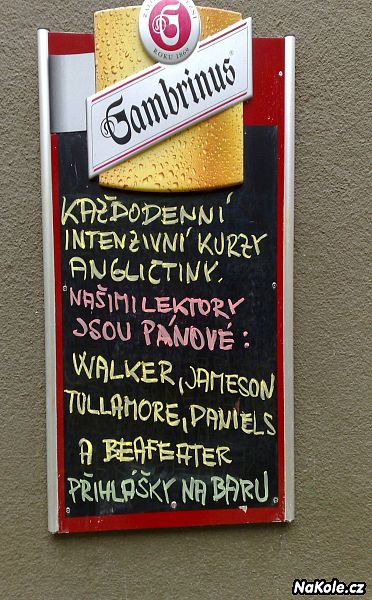 ROKU 1869
Gambrinus
KAŽDODENNÍ
INTENZIVNÍ KURZY
ANGLIČTINY.
NAŠIMI LEKTORY
JSOU PÁNOVÉ:
WALKER, JAMESON
TULLAMORE, DANIELS
A BEAFEATER
PŘIHLÁŠKY NA BARU
NaKole.cz